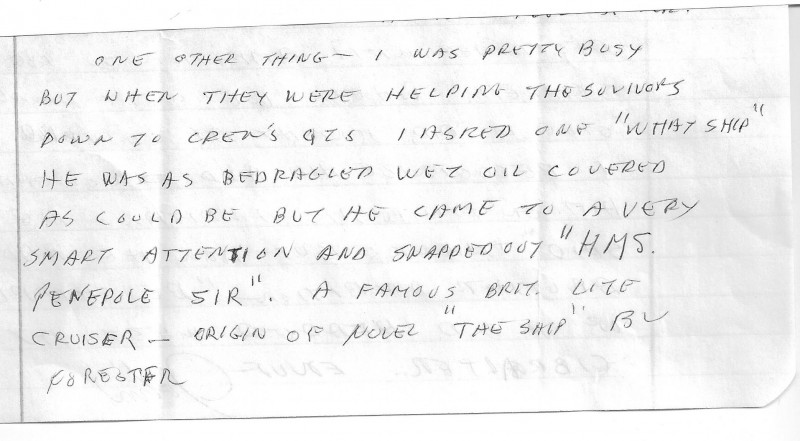 ONE OTHER THING — I WAS PRETTY BUSY
BUT WHEN THEY WERE HELPING THE SUVIVORS
DOWN TO CREW'S QTS I ASKED ONE "WHAT SHIP"
HE WAS AS BEDRAGLED WET OIL COVERED
AS COULD BE BUT HE CAME TO A VERY
SMART ATTENTION AND SNAPPED OUT "HMS.
PENEPOLE SIR". A FAMOUS BRIT. LITE
CRUISER — ORIGIN OF NOVEL "THE SHIP" BY
FORESTER